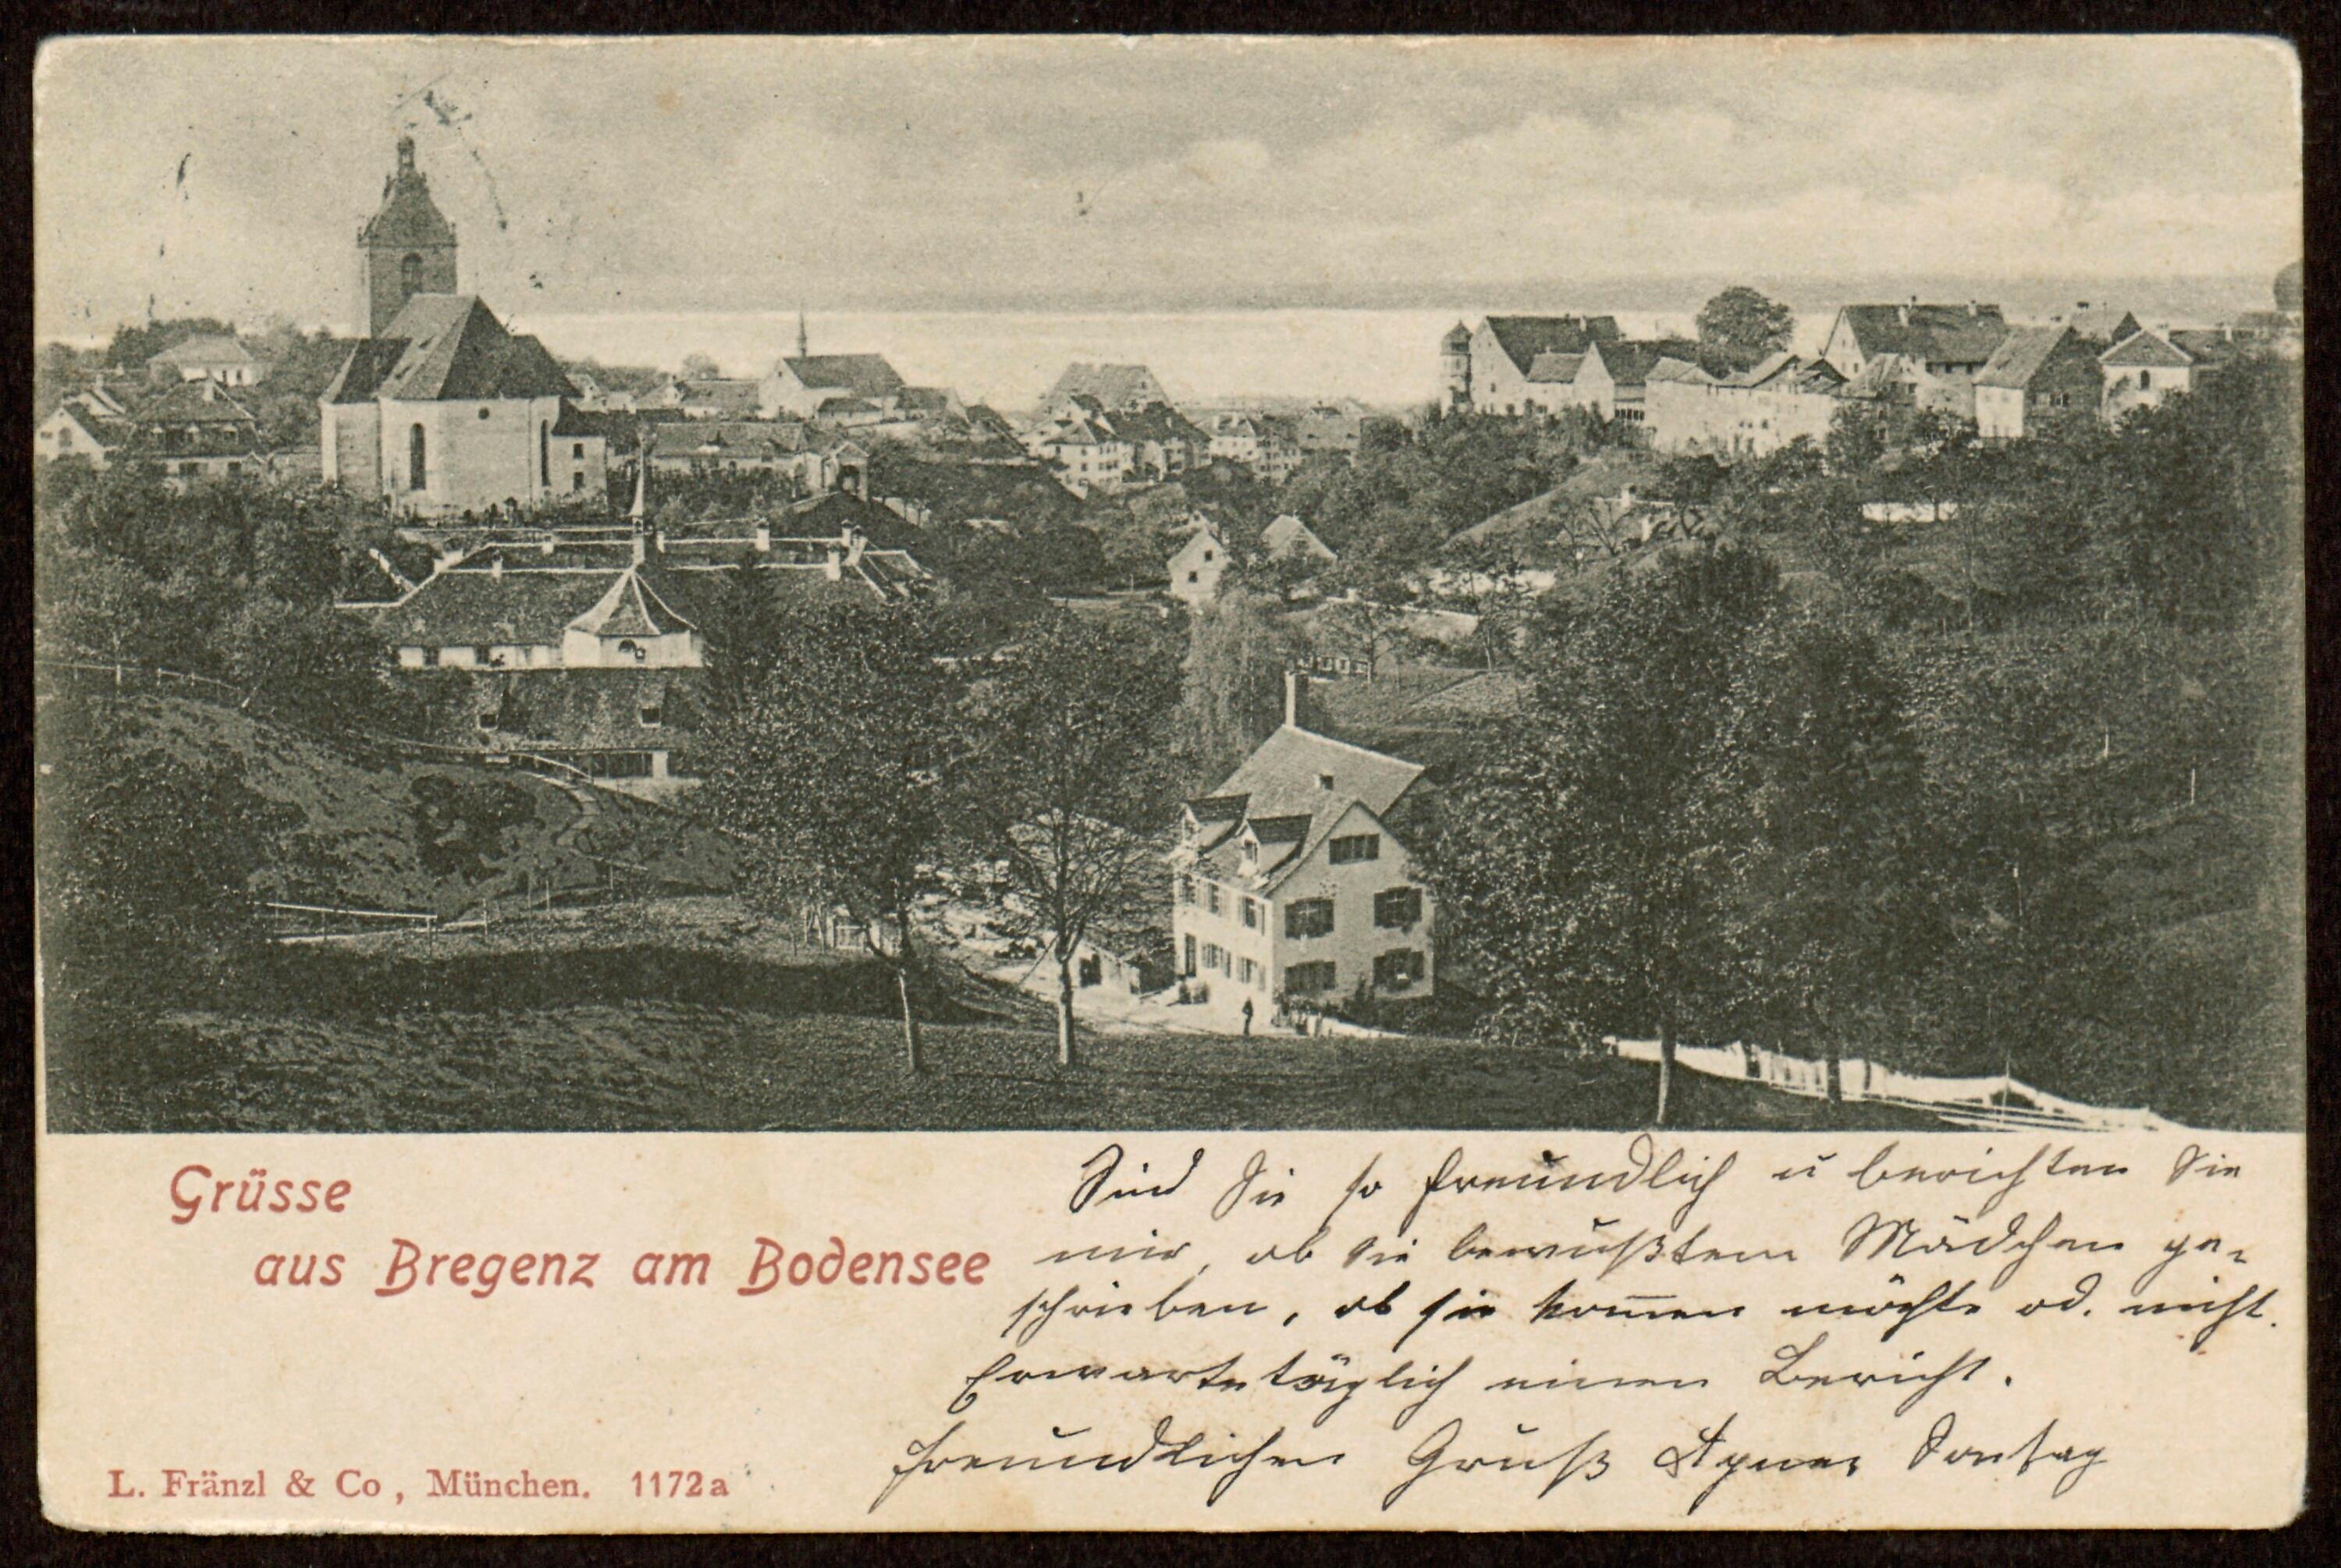 Grüsse
aus Bregenz am Bodensee
Sind Sie so freundlich u berichten Sie
mir, ob Sie bewußtem Mädchen ge-
schrieben, ob sie kom̅en möchte od. nicht.
Erwarte täglich einen Bericht.
Freundlichen Gruß Agnes
L. Fränzl & Co, München. 1172a